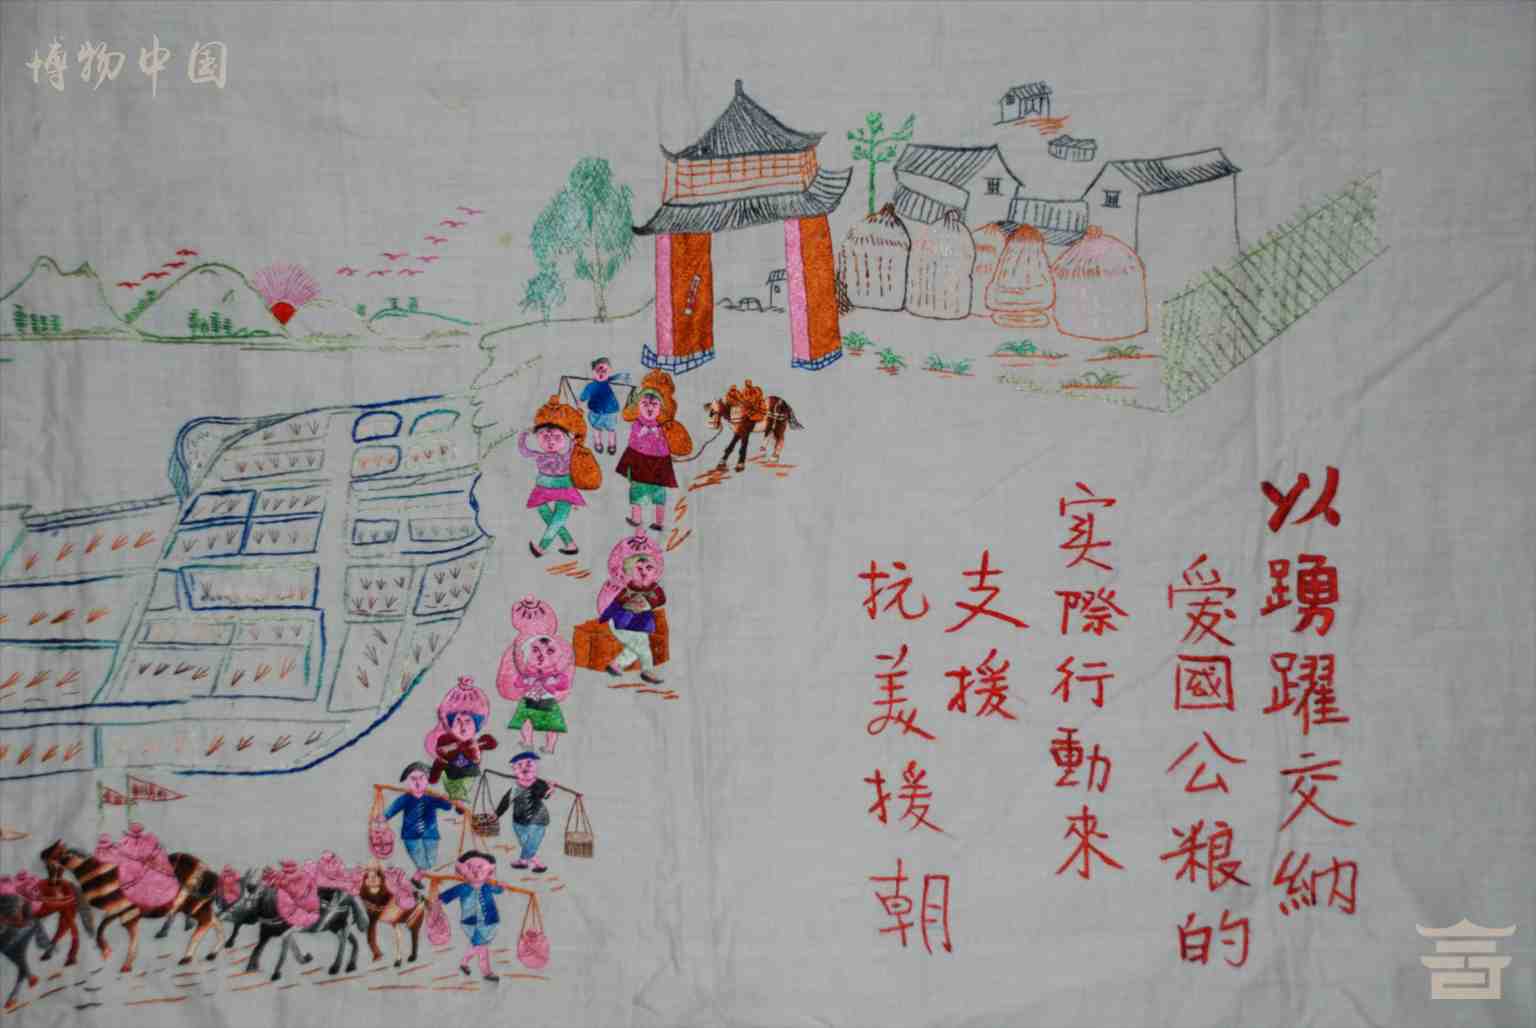 博物中国
以踴躍交納
愛國公粮的
实際行動來
支援
抗美援朝